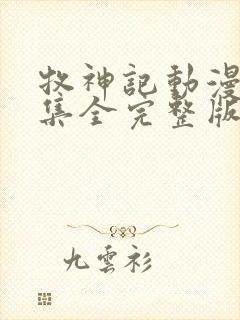 牧神記動漫
集全完整版
九雲衫